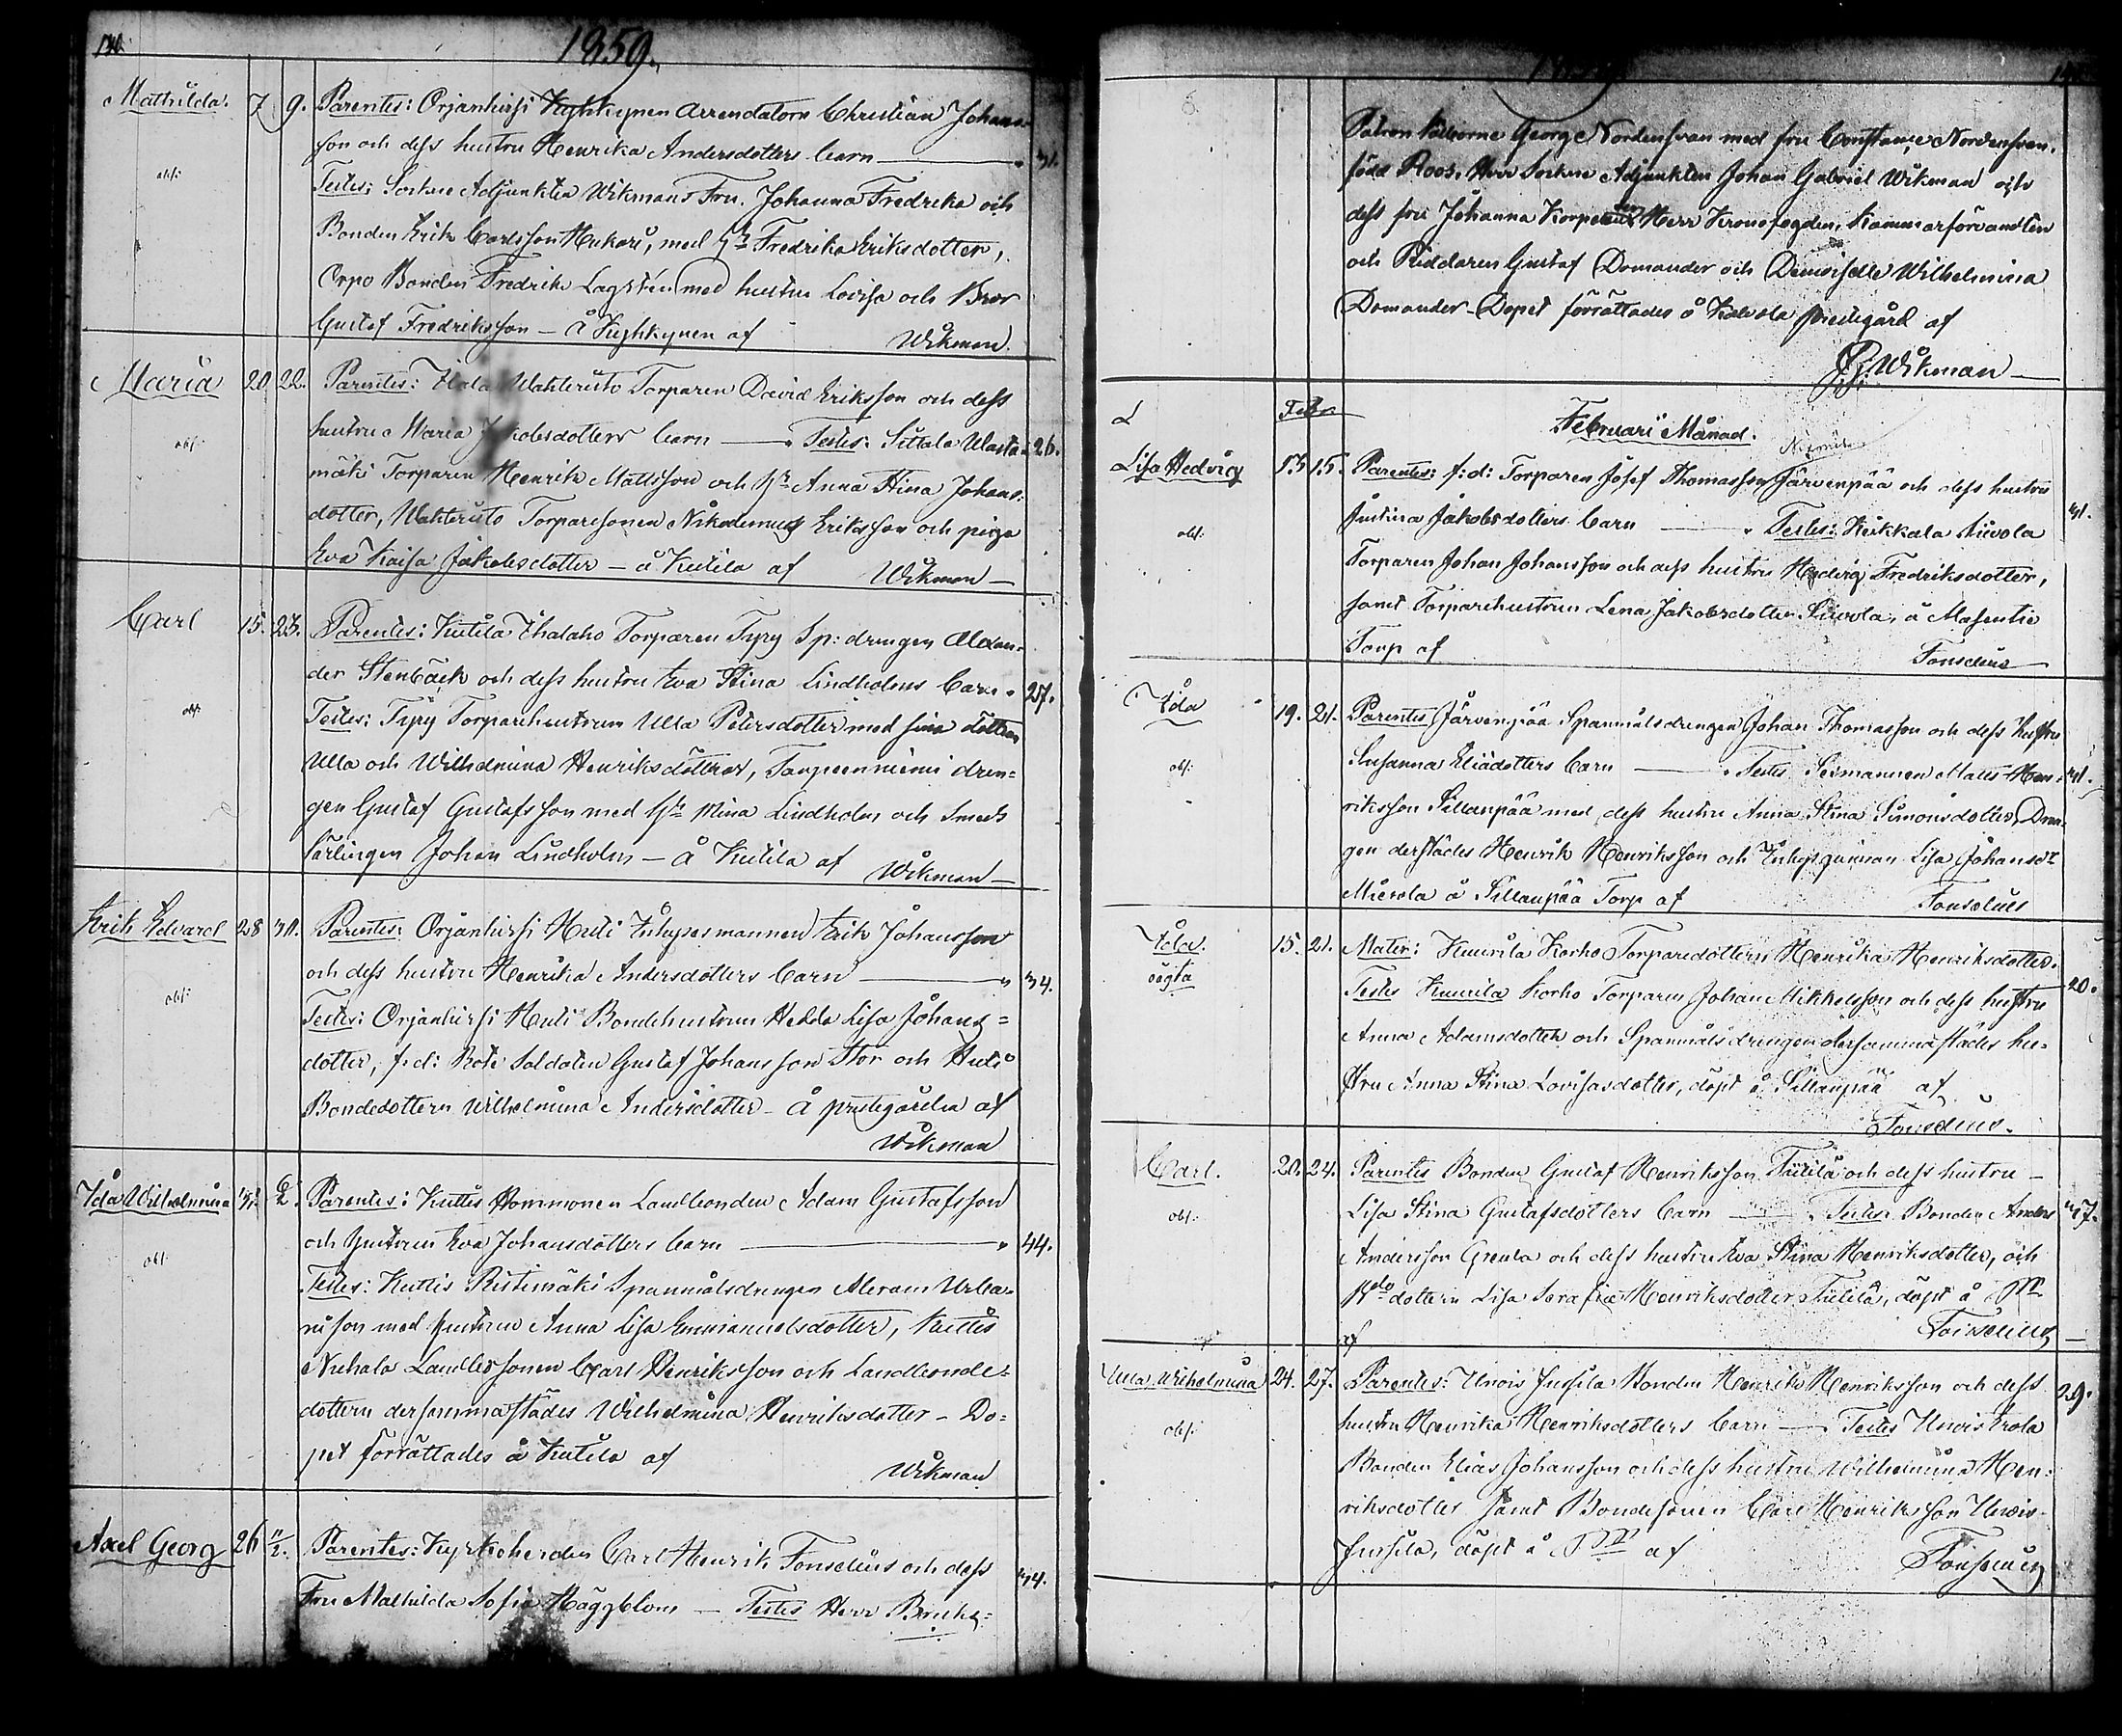 140.
1859.
Mathilda. 7 9. Parentes: Orjanhirsi Kyhkynen Arrendatorn Christian Johans
son och dess hustru Henrika Andersdotters barn — 31.
obs: Testes: Sockne Adjunkten Wikmans Fru Johanna Fredrika och
Bonden Erik Carlsson Hukari, med Hu Fredrika Eriksdotter,
Orpo Bonden Fredrik Lagstén med hustru Lovisa och Bror
Gustaf Fredriksson — å Kyhkynen af Wikman.
Maria 20 22. Parentes: Wahteristo Torparen David Eriksson och dess
obs: hustru Maria Jakobsdotters barn — Testes: Sittala Ulasta 26.
mäki Torparen Henrik Mattsson och Hu Anna Stina Johans:
dotter, Wahteristo Torparesonen Nikodemus Eriksson och piga
Eva Kaisa Jakobsdotter — å Kutila af Wikman —
Carl 15. 23. Parentes: Kutila Torparen Typy Sp: drengen Alexan=
der Stenbäck och dess hustru Eva Stina Lindholms barn 27.
obs: Testes: Typy Torparehustrun Ulla Petersdotter med sina döttrar
Ulla och Wilhelmina Henriksdöttrar, drän=
gen Gustaf Gustafsson med Hu Mina Lindholm och Smeds
lärlingen Johan Lindholm — å Kutila af Wikman —
Erik Edvard 28 30. Parentes: Orjanhirsi Huti Inhysesmannen Erik Johansson
och dess hustru Henrika Andersdotters barn — 34.
obs: Testes: Orjanhirsi Huti Bondehustrun Hedda Lisa Johans=
dotter, f:d: Rote Soldaten Gustaf Johansson Stor och Huti
Bondedottern Wilhelmina Andersdotter — å prestgården af
Wikman
Ida Wilhelmina Parentes: Kuttis Hommonen Landbonden Adam Gustafsson
och hustrun Eva Johansdotters barn — 44.
obs: Testes: Kuttis Ristimäki Spanmålsdrengen Abram Urba=
nsson med hustrun Anna Lisa Emmanuelsdotter, Kuttis
Nuhala Landbosonen Carl Henriksson och Landbonde=
dottern dersammastädes Wilhelmina Henriksdotter — Do=
pet förrättades å Kutila af Wikman
Axel Georg 26 Parentes: Kyrkoherden Carl Henrik Fonselius och dess 34.
Fru Mathilda Sofia Häggblom — Testes Herr Bruks=
Patron Välborne George Nordensvan med fru Constance Nordensvan,
född Roos, Herr Sockne Adjunkten Johan Gabriel Wikman och
dess fru Johanna Herr Kronofogden, Kammarförvandten
och Riddaren Gustaf Domander och Demoiselle Wilhelmina
Domander — Dopet förrättades å Kalvola prestegård af
Wikman —
Febr. Februari Månad.
Lisa Hedvig 13 15. Parentes: f:d: Torparen Josef Thomasson Järvenpää och dess hustru
obs: Justina Jakobsdotters barn — Testes: Keikkala Siivola 31.
Torparen Johan Johansson och dess hustru Hedvig Fredriksdotter,
samt Torparehustrun Lena Jakobsdotter Siivola, å
Torp af Fonselius
Ida 19. 21. Parentes Järvenpää Spanmålsdrengen Johan Thomasson och dess hustru
obs: Susanna Eliædotters barn — Testes Matts Hen= 31.
riksson Sillanpää med dess hustru Anna Stina Simonsdotter, Dren=
gen derstädes Henrik Henriksson och Inhysqvinnan Lisa Johansdr
å Sillanpää Torp af Fonselius
Ida. oägta 15. 21. Mater: Kuurila Korho Torparedottern Henrika Henriksdotter. 20.
Testes Kuurila Korho Torparen Johan Mikkelsson och dess hustru
Anna Adamsdotter och Spanmålsdrengen dersammastädes hu=
stru Anna Stina Lovisasdotter, döpt å Sillanpää af
Fonselius.
Carl. 20. 24. Parentes Bonden Gustaf Henriksson Tiitilä och dess hustru —
obs: Lisa Stina Gustafsdotters barn — Testes Bonden Anders 37.
Andersson och dess hustru Eva Stina Henriksdotter, och
dottern Lisa Serafia Henriksdotter Tiitilä, döpt å
af Fonselius —
Ulla Wilhelmina 24. 27. Parentes: Unois Jussila Bonden Henrik Henriksson och dess 29.
obs: hustru Henrika Henriksdotters barn — Testes Unois
Bonden Elias Johansson och dess hustru Wilhelmina Hen=
riksdotter samt Bondesonen Carl Henriksson Unois
Jussila, döpt å af Fonselius